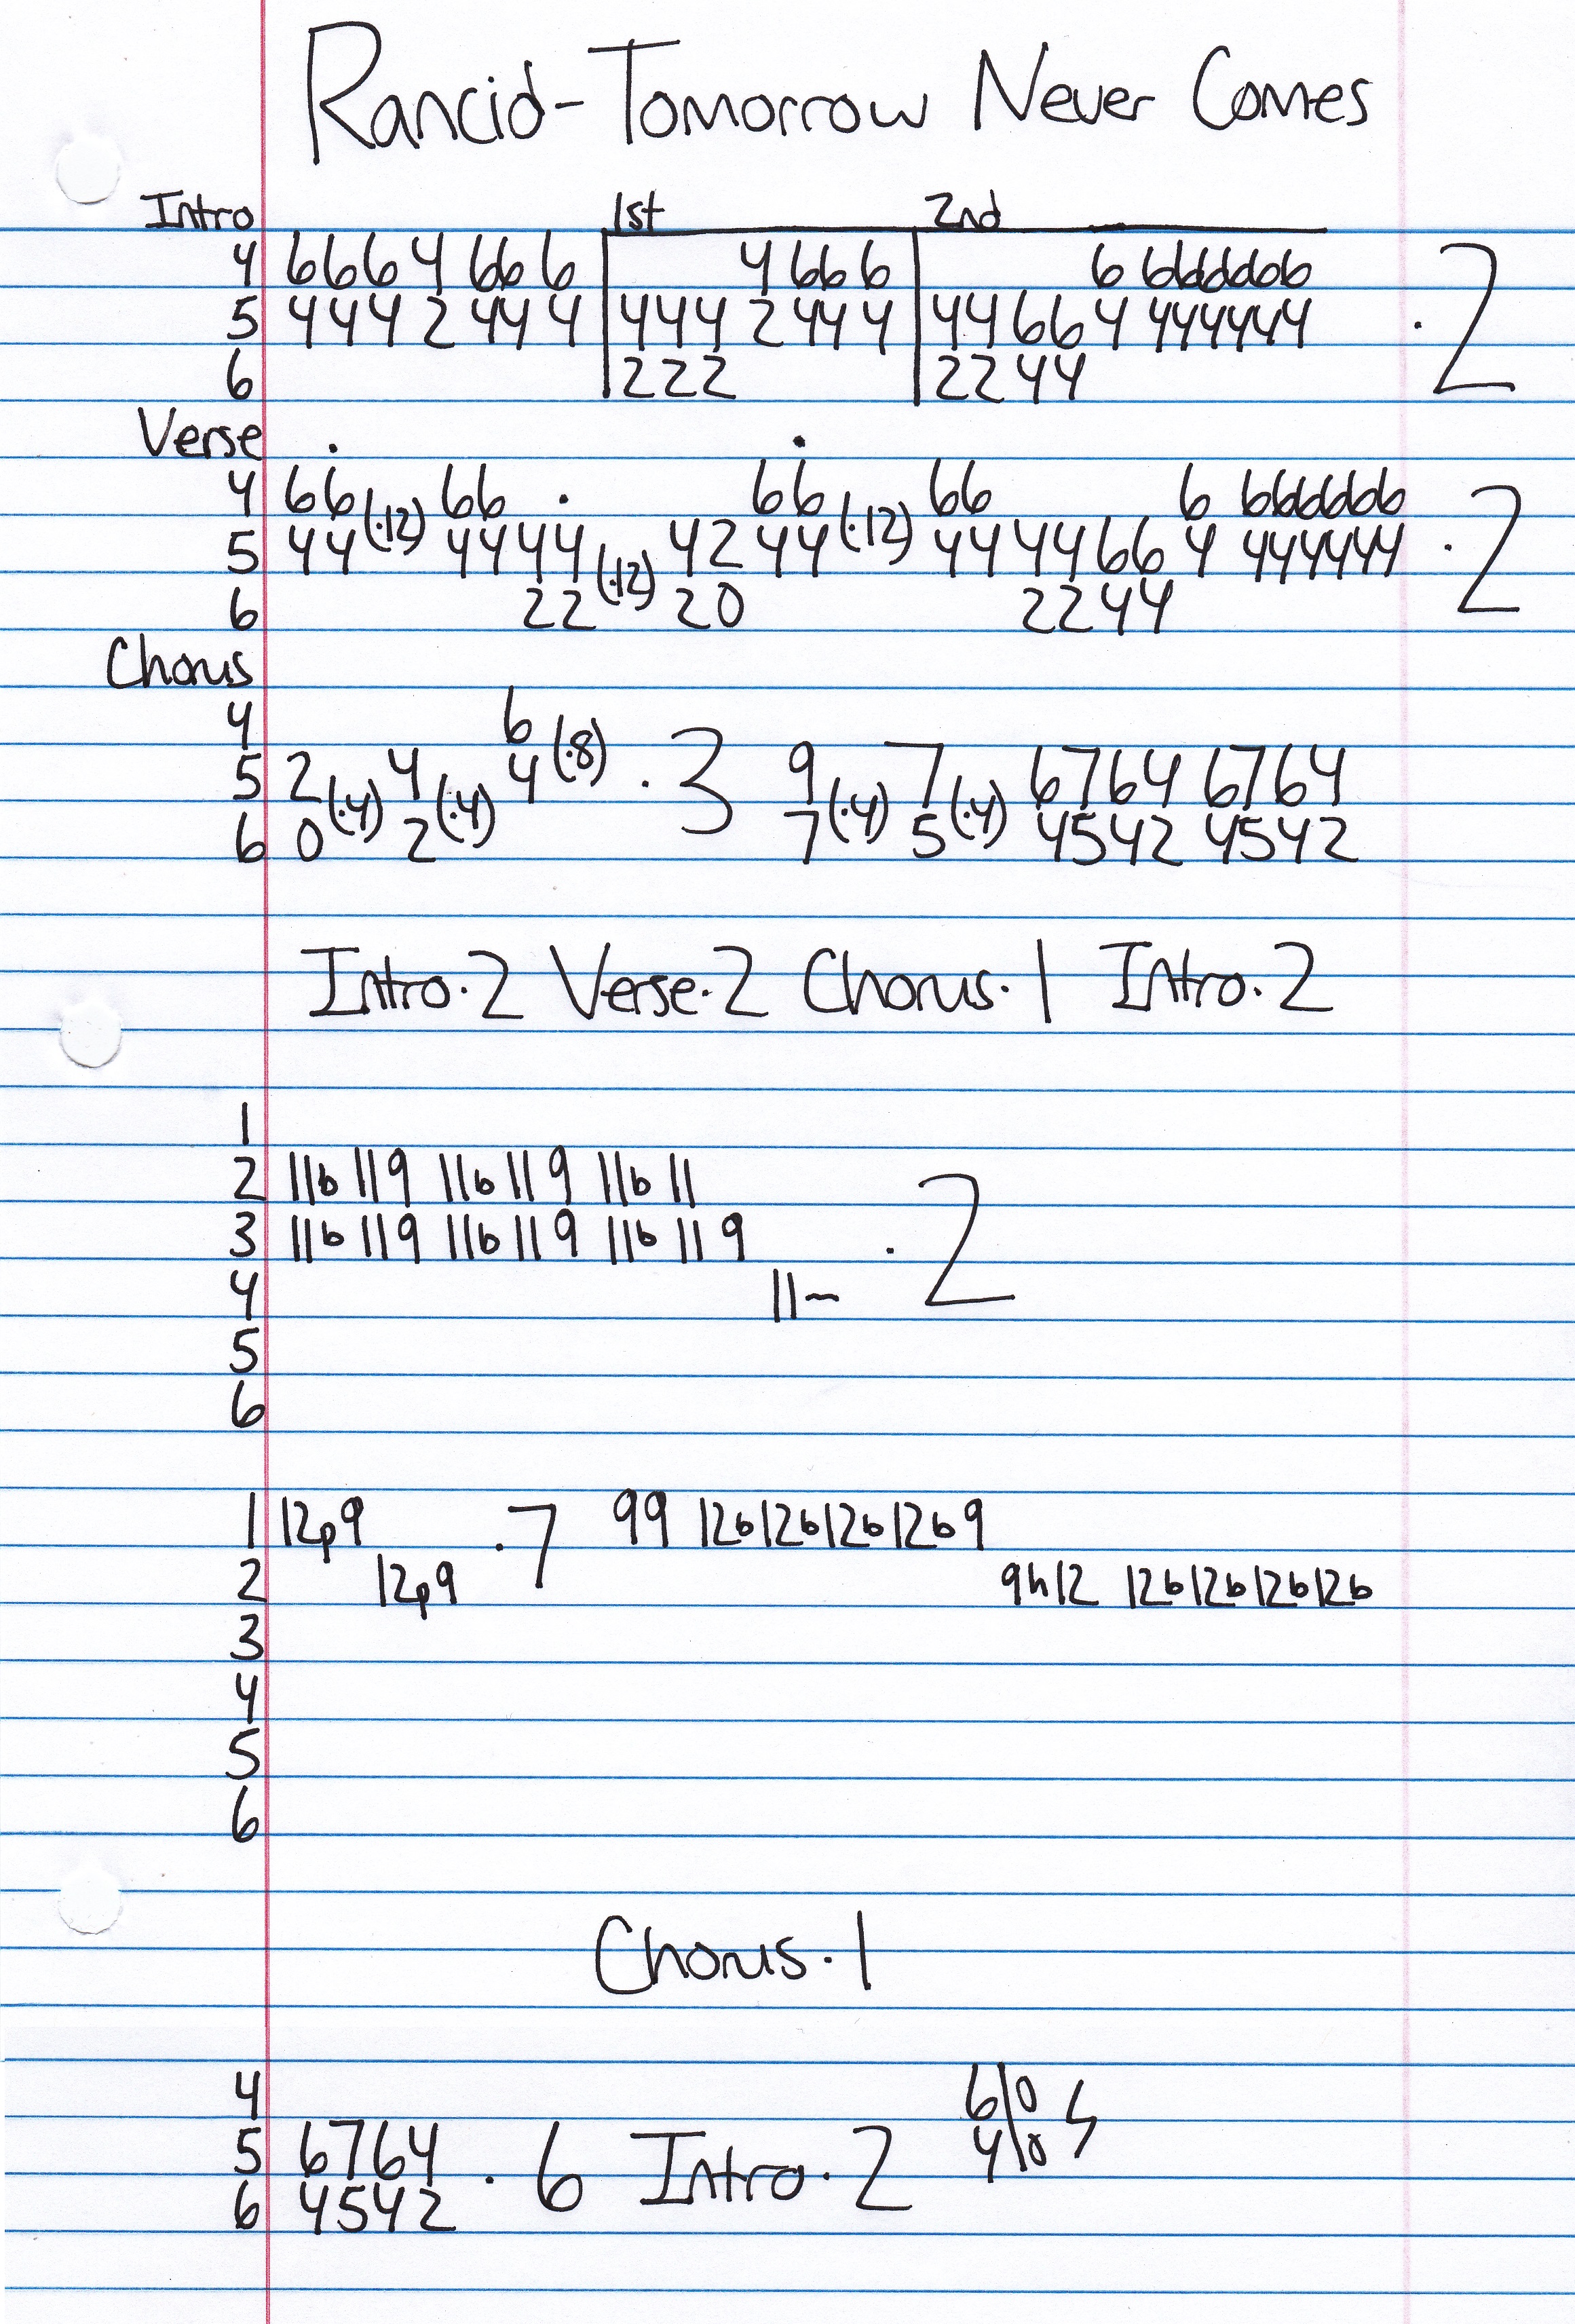 Rancid - Tomorrow Never Comes
Intro 1st 2nd
4 6 6 6 4 6 6 6 4 6 6 6 6 6 6 6 6 6 6
5 4 4 4 2 4 4 4 4 4 4 2 4 4 4 4 4 6 6 4 4 4 4 4 4 4 . 2
6 2 2 2 2 2 4 4
Verse . .
4 6 6 6 6 . 6 6 6 6 6 6 6 6 6 6 6
5 4 4 (.12) 4 4 4 4 4 2 4 4 (.12) 4 4 4 4 6 6 4 4 4 4 4 4 4 . 2
6 2 2 (.12) 2 0 2 2 4 4
Chorus
4 6
5 2 4 4 (.8) . 3 9 7 6 7 6 4 6 7 6 4
6 0 (.4) 2 (.4) 7 (.4) 5 (.4) 4 5 4 2 4 5 4 2
Intro . 2 Verse . 2 Chorus . 1 Intro . 2
1
2 11b 11 9 11b 11 9 11b 11
3 11b 11 9 11b 11 9 11b 11 9 . 2
4 11~
5
6
1 12p9 . 7 9 9 12b12b12b12b9
2 12p9 9h12 12b12b12b12b
3
4
5
6
Chorus . 1
4 6\0
5 6 7 6 4 . 6 Intro . 2 4\0
6 4 5 4 2